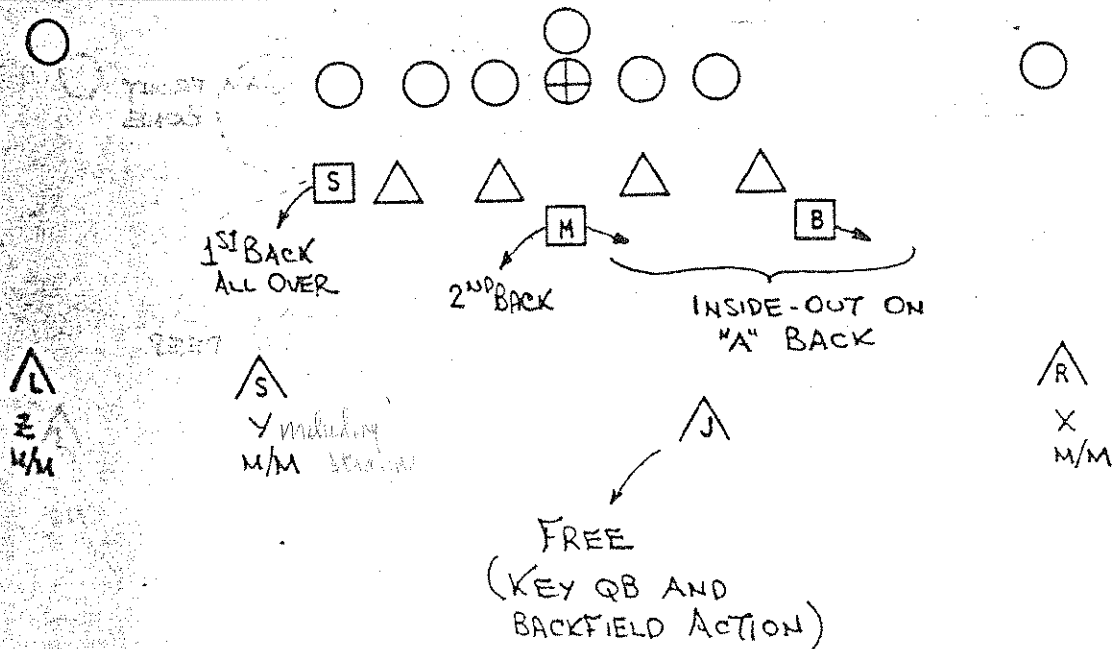 S
M
B
1ST BACK
ALL OVER
2ND BACK
INSIDE-OUT ON
"A" BACK
L
Z
M/M
S
Y
M/M
J
R
X
M/M
FREE
(KEY QB AND
BACKFIELD ACTION)